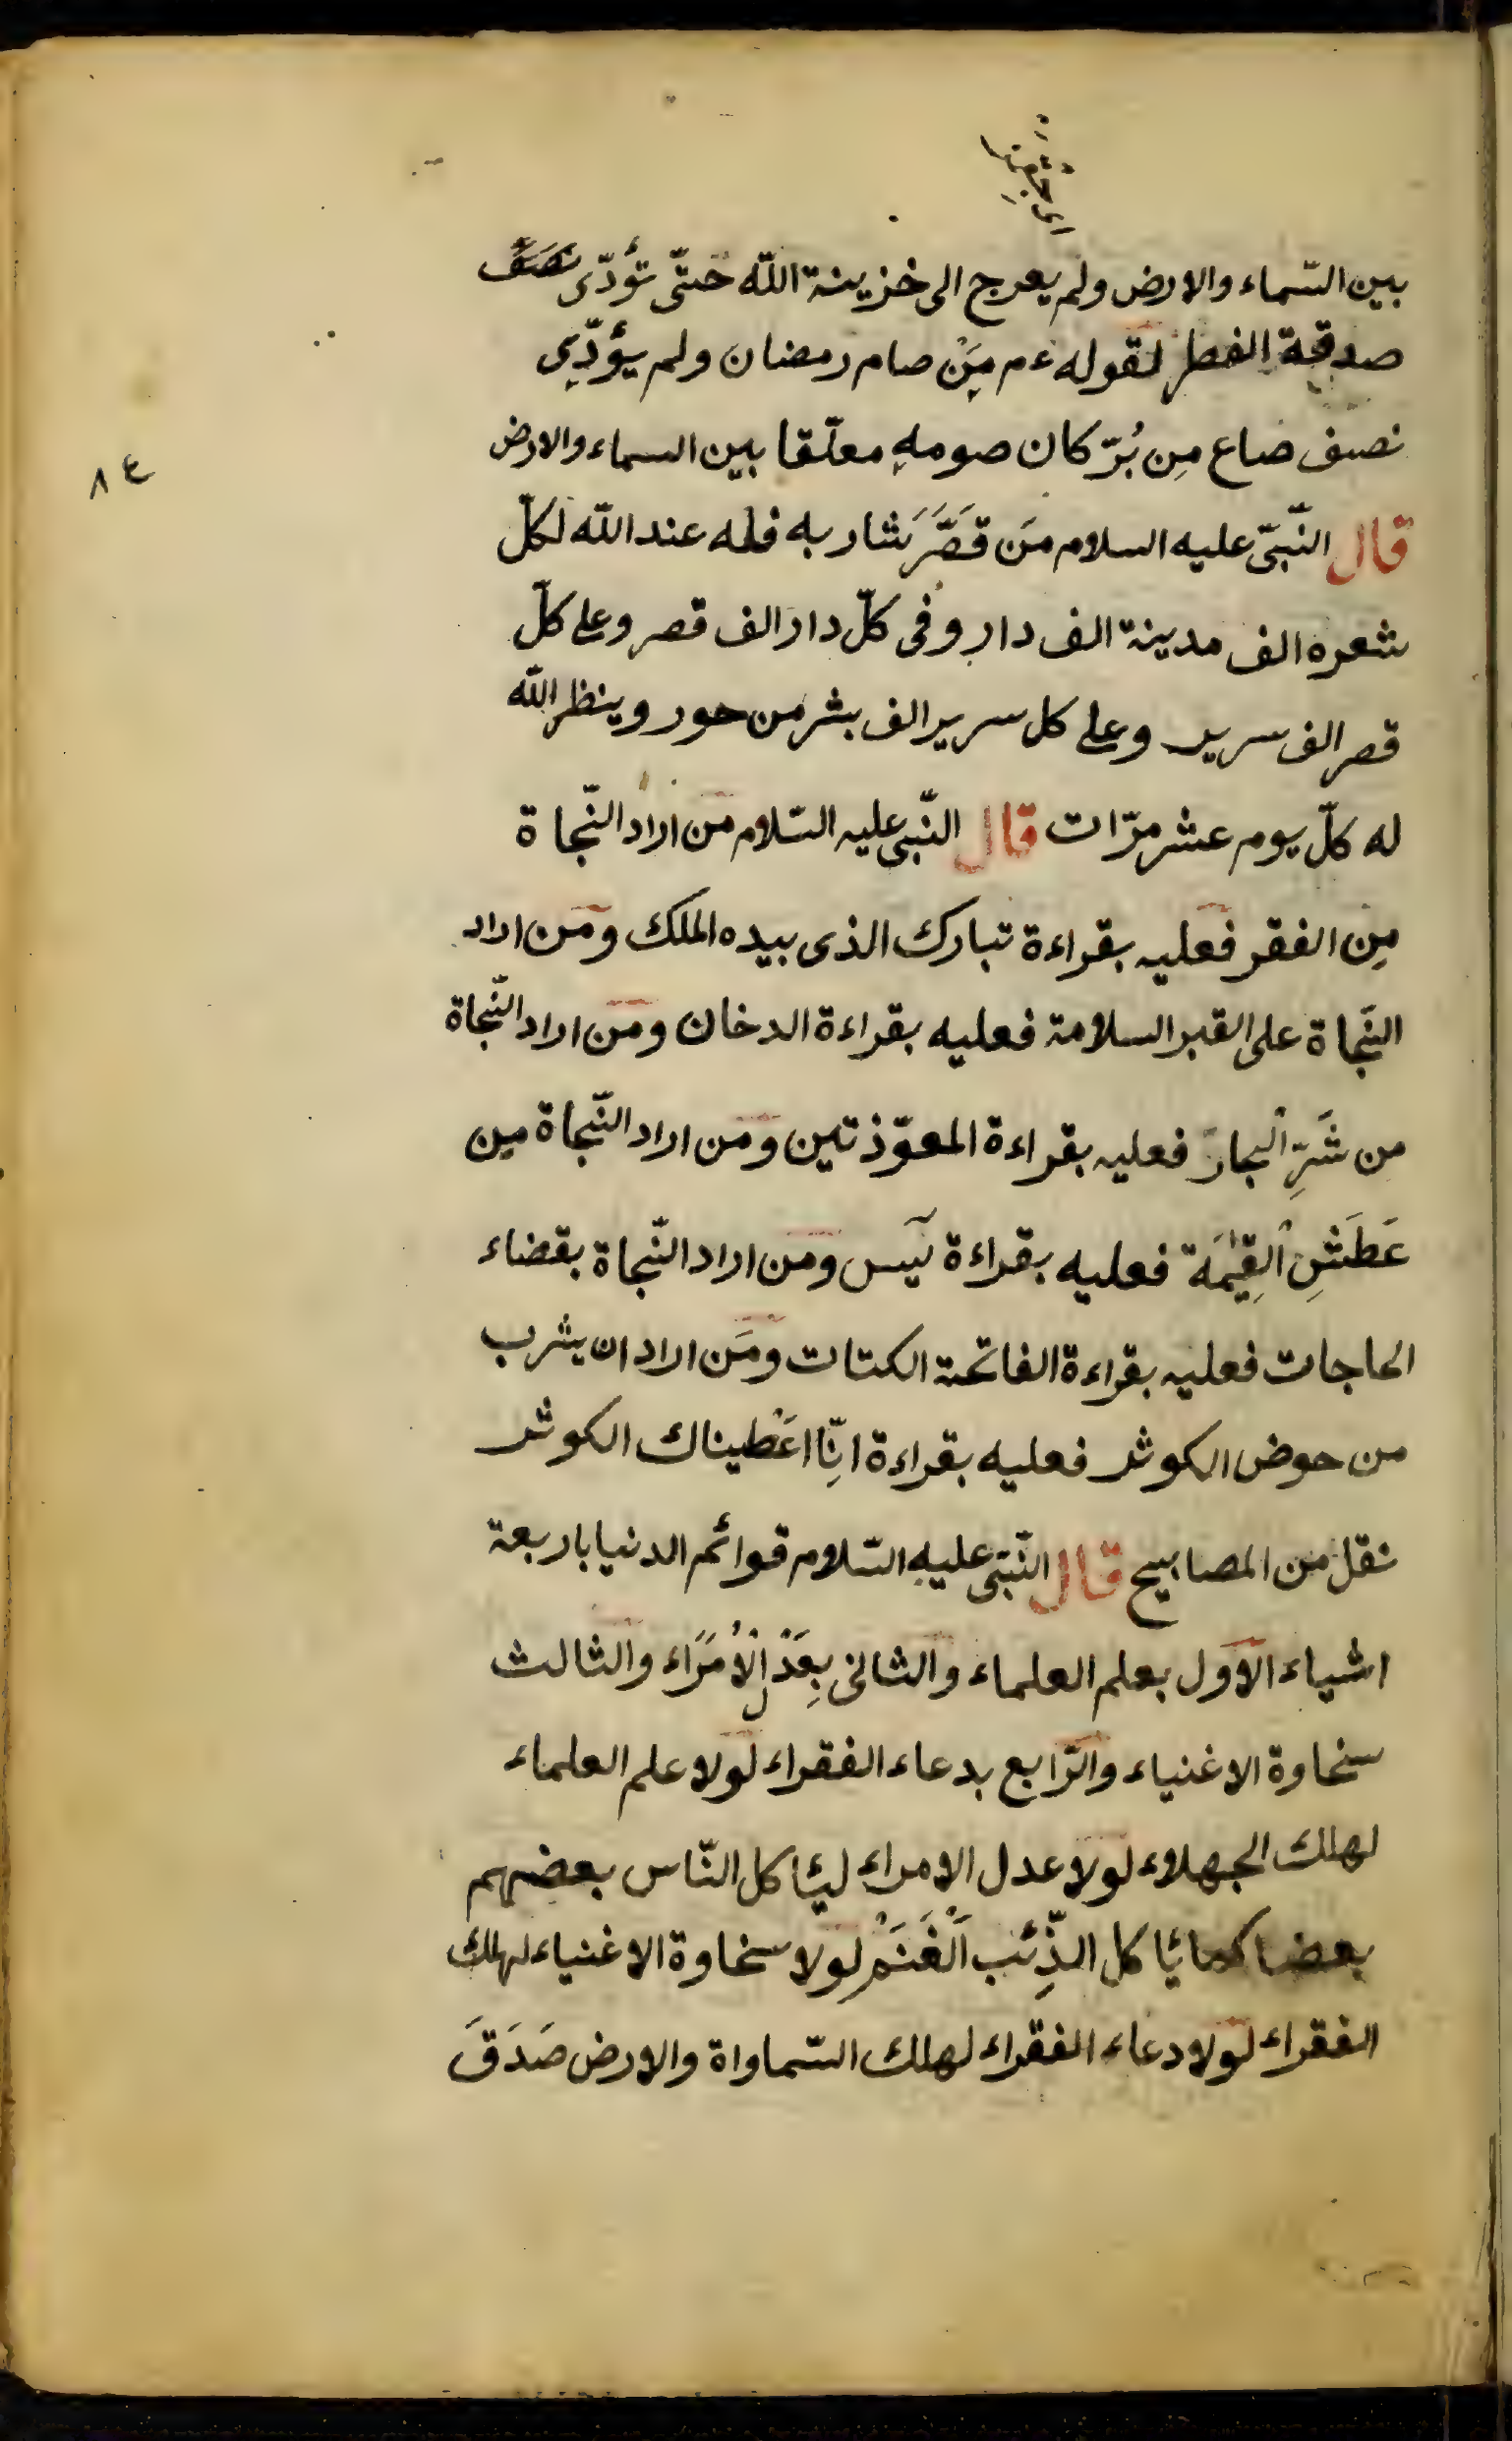 بين السّماء والارض ولم يعرج الى خزينة اللّه حَتّى تؤدّى نصف
صدقة الفطر لقوله ءم مَنْ صام رمضان ولم يؤدّى
نصف صاع مِن بُرّ كان صومهِ معلّقا بين السماء والارض
قال النّبىّ عليه السلام مَن قَصَّرَ شاربه فله عند اللّه لكلّ
شعره الف مدينة الف دار وفى كلّ دار الف قصر وعلى كلّ
قصر الف سرير وعلى كل سرير الف بشر من حور وينظر اللّه
له كلّ يوم عشر مرّات قال النّبى عليه السّلام من اراد النّجاة
مِن الفقر فعليه بقراءة تبارك الذى بيده الملك ومَن اراد
النّجاة على القبر السلامة فعليه بقراءة الدخان ومَن اراد النّجاة
من شَرِّ الجارّ فعليه بقراءة المعوّذتين ومَن اراد النّجاة مِن
عَطَشِ القِيٰمَة فعليه بقراءة يٓس ومن اراد النّجاة بقضاء
الحاجات فعليه بقراءة الفاتحة الكتات ومَن اراد ان يشرب
من حوض الكوثر فعليه بقراءة انّا اعْطيناك الكوثر
نقل من المصابيح قال النّبىّ عليه السّلام قوائم الدنيا باربعة
اشياء الاوّل بعلم العلماء والثانى بِعَدْلِ الْاُمَرَاء والثالث
سخاوة الاغنياء والرّابع بدعاء الفقراء لولا علم العلماء
لهلك الجهلاء لولا عدل الامراء لئاكل النّاس بعضهم
بعضا كما ئاكل الذِّئب الْغَنَمَ لولا سخاوة الاغنياء لهلك
الفقراء لولا دعاء الفقراء لهلك السّماواة والارض صَدَقَ
٨٤